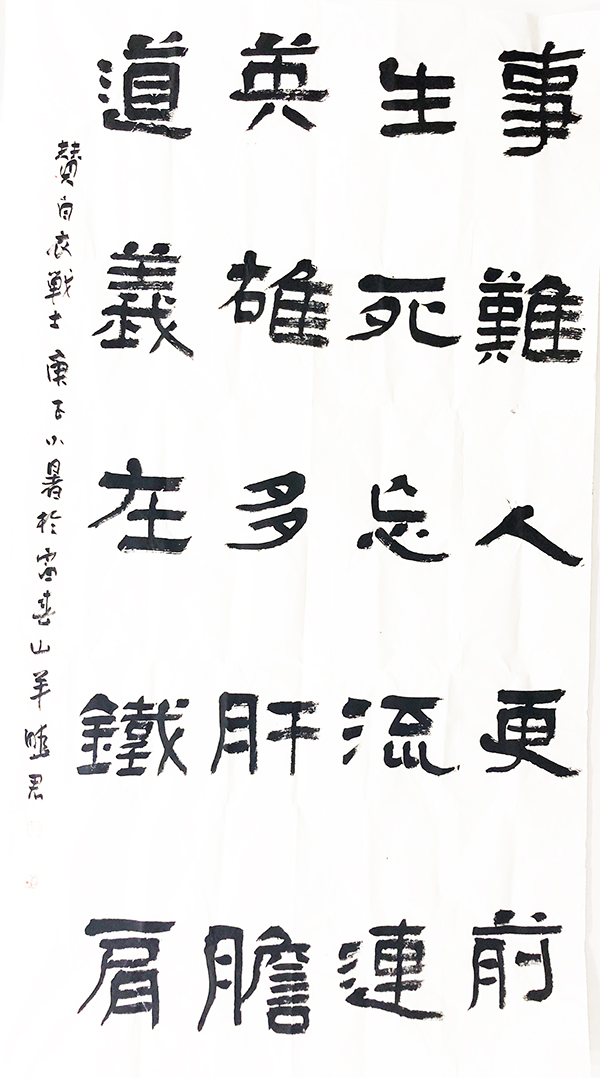 事難人更前
生死忘流連
英雄多肝膽
道義在鐵肩
贊白衣戰士 庚子小暑於富春山羊曉君